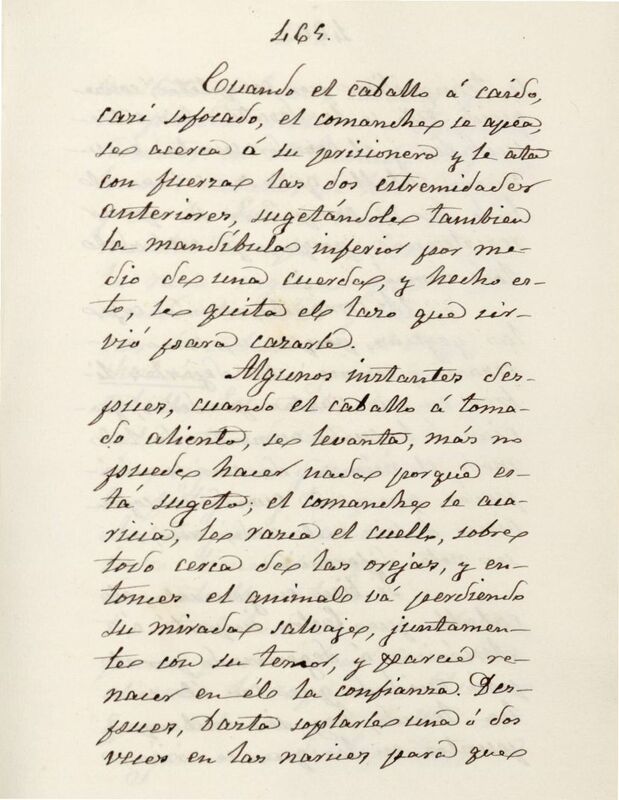 465.
Cuando el caballo á caido,
casi sofocado, el comanche se apea,
se acerca á su prisionero y le ata
con fuerza las dos estremidades
anteriores, sugetándole tambien
la mandíbula inferior por me-
dio de una cuerda, y hecho es-
to, le quita el lazo que sir-
vió para cazarle.
Algunos instantes des-
pues, cuando el caballo á toma-
do aliento, se levanta, más no
puede hacer nada porque es-
tá sugeto; el comanche le aca-
ricia, le rasca el cuello, sobre
todo cerca de las orejas, y en-
tonces el animal vá perdiendo
su mirada salvaje, juntamen-
te con su temor, y parece re-
nacer en él la confianza. Des-
pues, basta soplarle una ó dos
veces en las narices para que